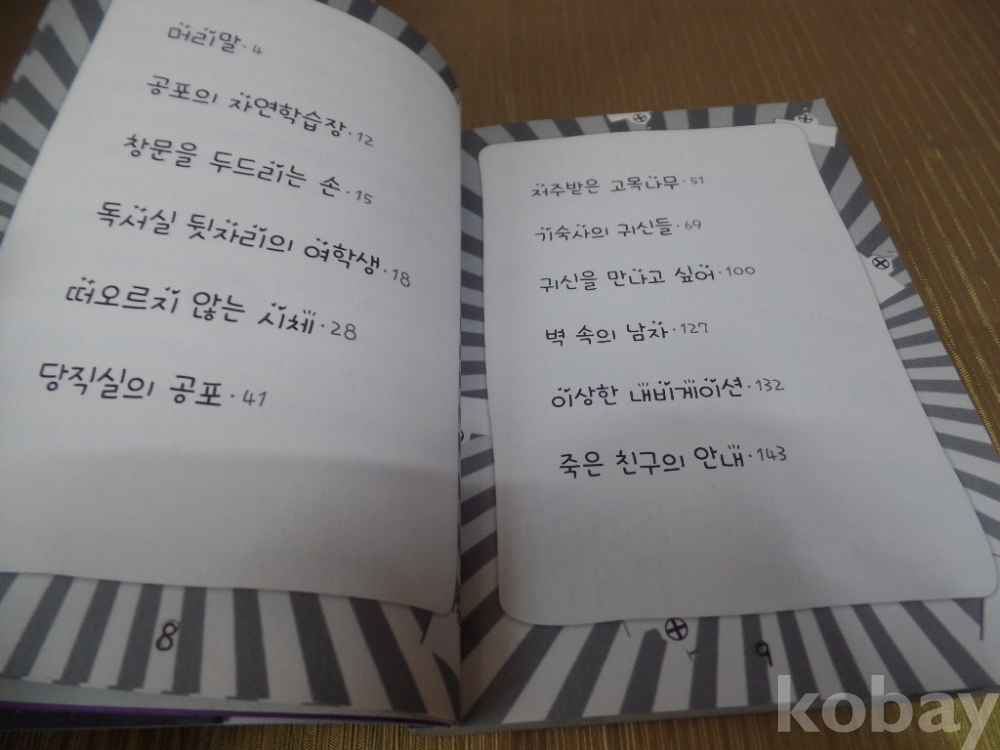 머리말·4
공포의 자연학습장·12
창문을 두드리는 손·15
독서실 뒷자리의 여학생·18
떠오르지 않는 시체·28
당직실의 공포·41
8
저주받은 고목나무·51
기숙사의 귀신들·69
귀신을 만나고 싶어·100
벽 속의 남자·127
이상한 내비게이션·132
죽은 친구의 안내·143
9
kobay